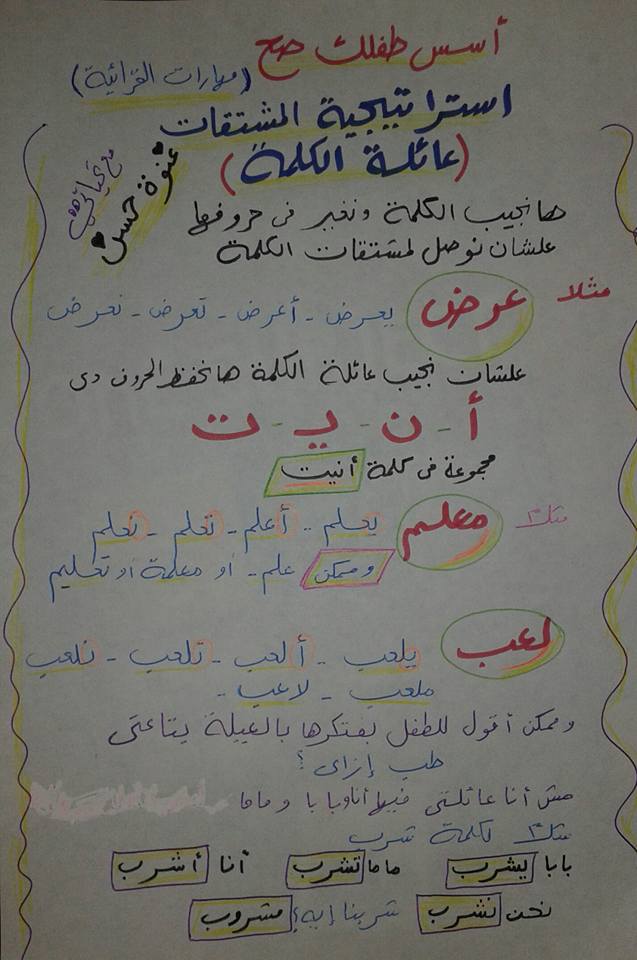 أسس طفلك صح
(مهارات القرائية)
استراتيجية المشتقات
(عائلة الكلمة)
مع تحياتي
عنوة حسن
هانجيب الكلمة ونغير فى حروفها
علشان نوصل لمشتقات الكلمة
مثلا عرض يعرض - أعرض - تعرض - نعرض
علشان نجيب عائلة الكلمة هانحفظ الحروف دى
أ - ن - ي - ت
مجموعة فى كلمة أنيت
مثلا معلم يعلم - أعلم - تعلم - نعلم
وممكن علم - أو معلمة أو تعليم
لعب يلعب - ألعب - تلعب - نلعب
ملعب - لاعب -
وممكن أقول للطفل يفتكرها بالعيلة بتاعتى
طب إزاى ؟
مش أنا عائلتى فيها أنا وبابا وماما
مثلا لكلمة شرب
بابا يشرب ماما تشرب أنا أشرب
نحن نشرب شربنا إيه؟ مشروب